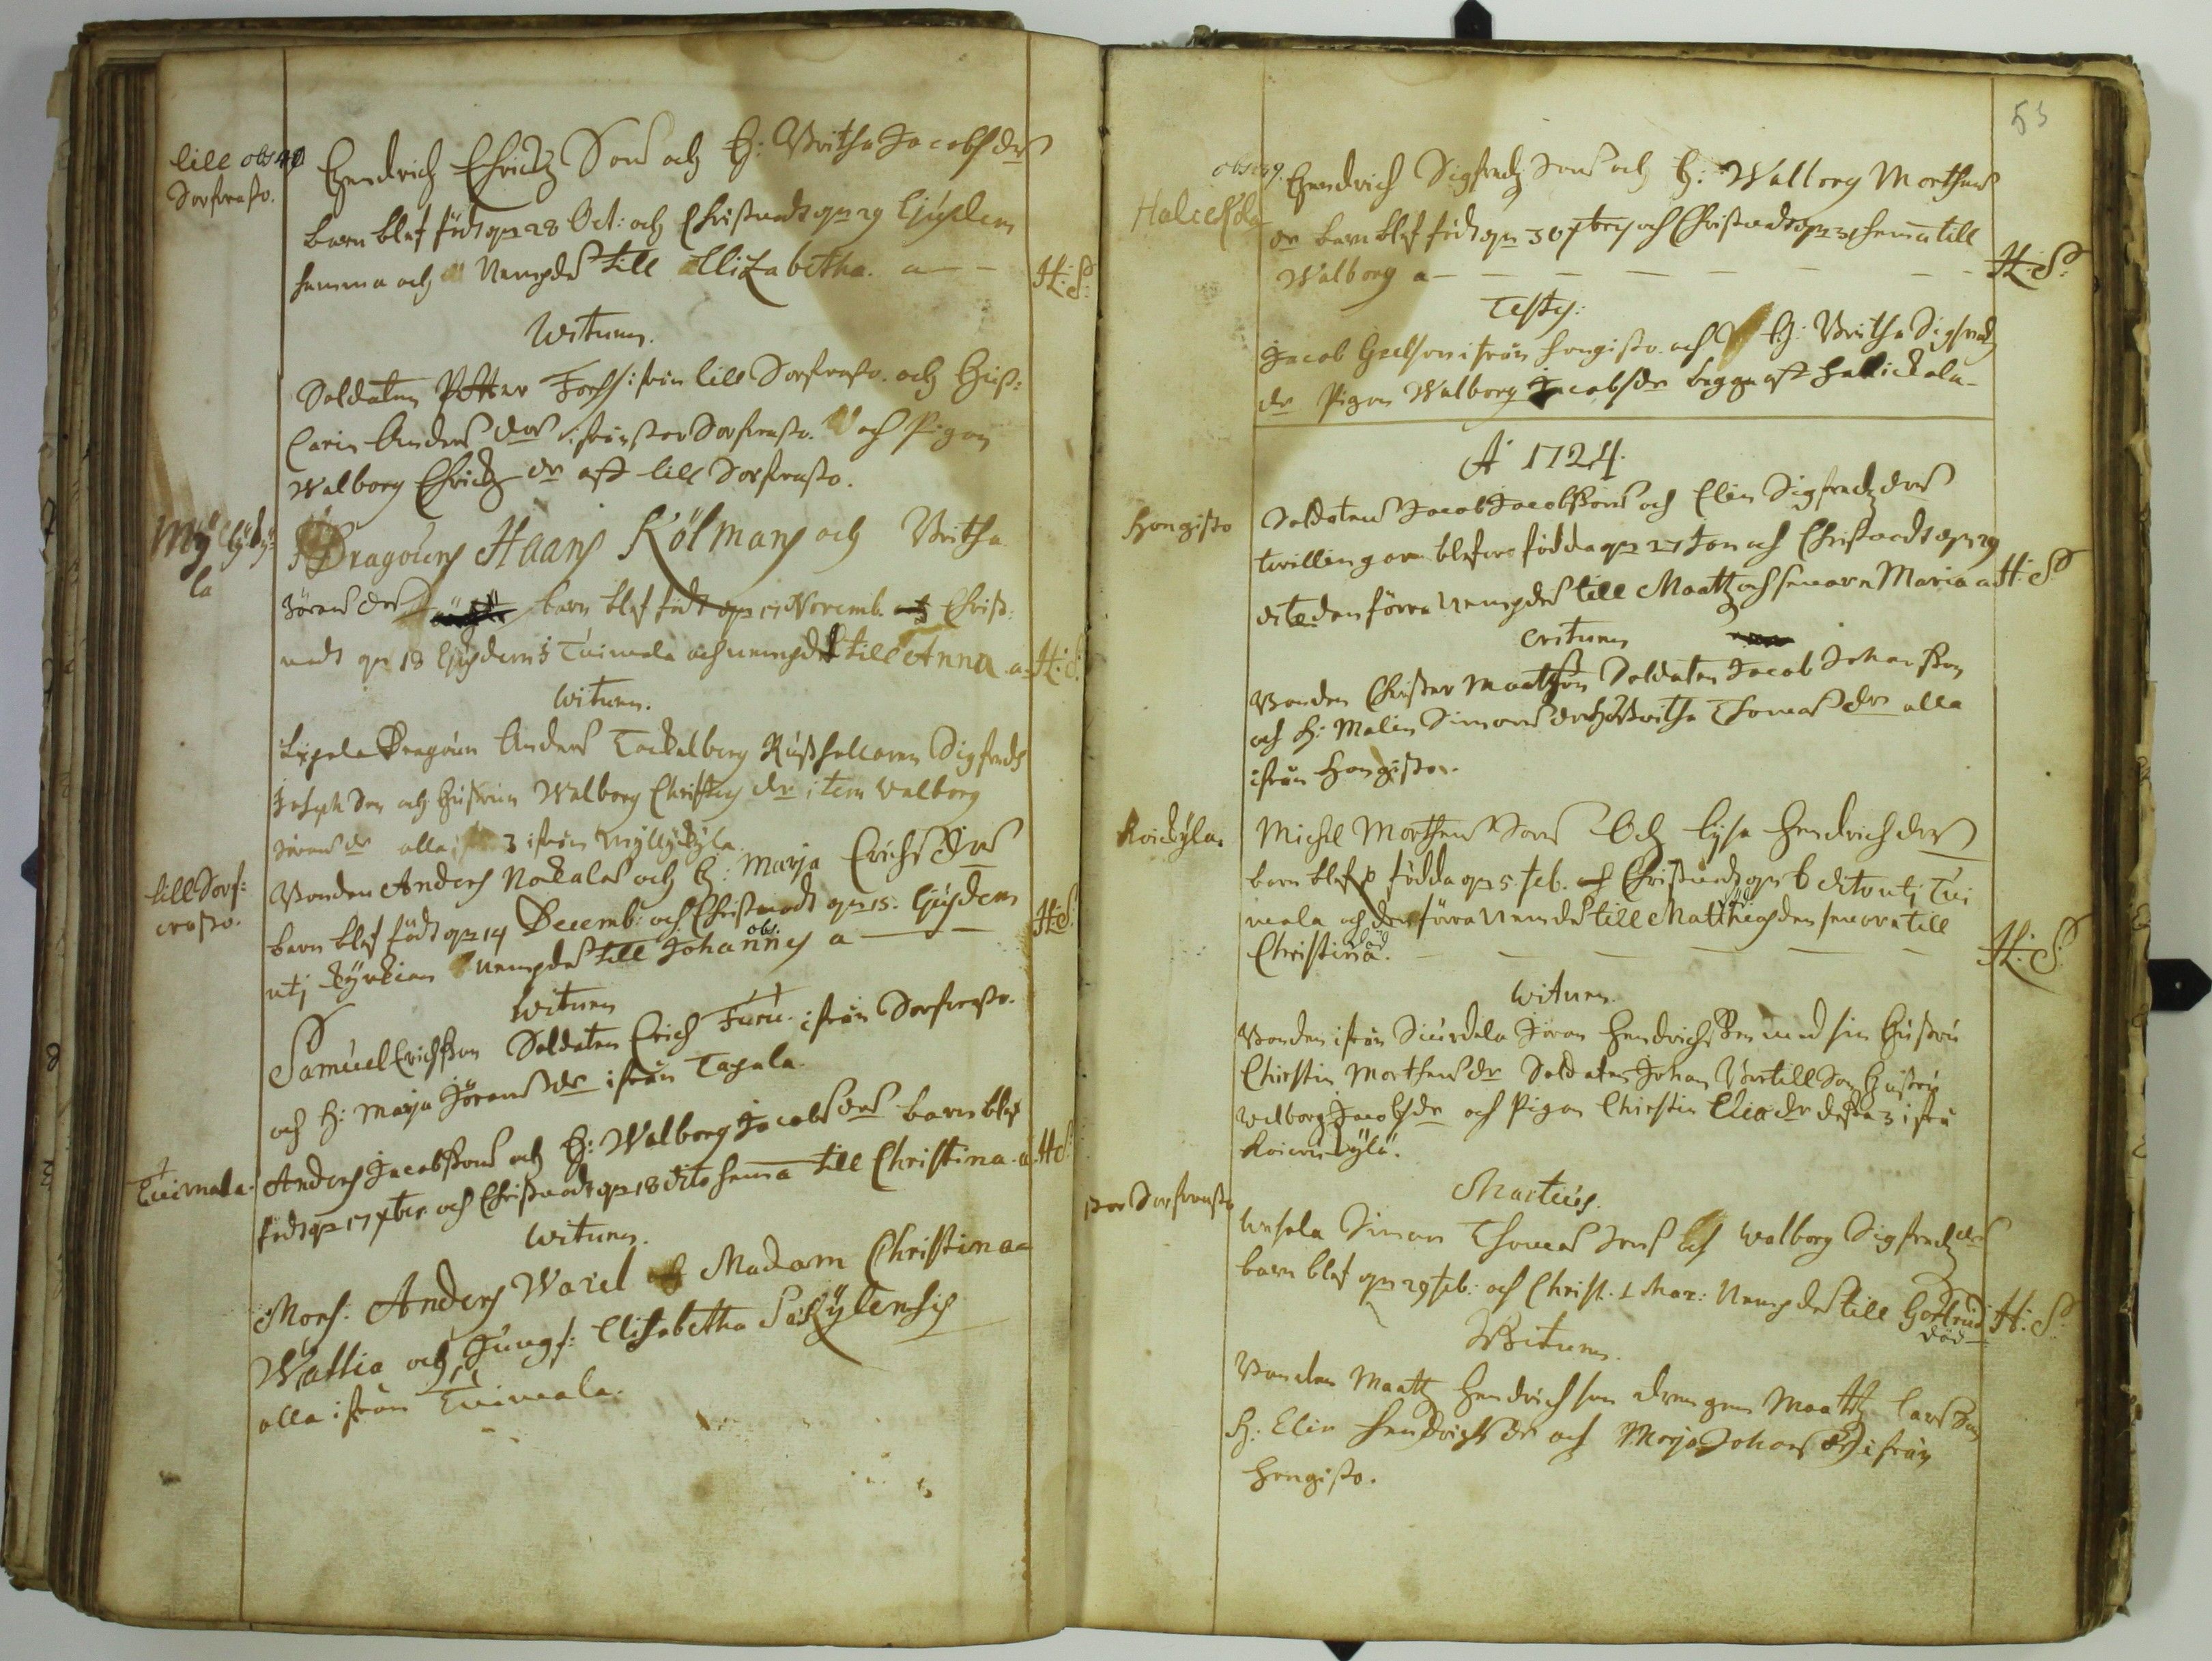 lill obs
Sorfwasto.
Hendrich Erichz Sons och H: Britha Jacobs dr
barn blef födt den 28 Oct: och Christnadt den 29 Ejusdem
hemma och Nempdes till Elizabetha. a
H: S:
Witnen.
Soldaten Petter Forss ifrån lill Sorfwasto. och Hust:
Carin Anders dotter ifrån stor Sorfwasto. och Pigan
Walborg Erichz dr aff lill Sorfwasto.
Mÿllÿkÿ
la
Dragouns Haans Kölmans och Britha
Jörans dr barn blef födt den 17 Novemb. och Christ:
nadt den 18 Ejusdem i Tuimala och nempdt till Anna a
H: S:
Witnen.
Dragoun Anders Tackelberg Rusthollaren Sigfredh
Joseph Son och Hustrun Walborg Christers dr item Walborg
Jörans dr alla 3 ifrån Mÿllÿkÿla.
lill Sorf:
wasto.
Bonden Anders Nockalas och H: Marja Erichs dr
barn blef födt den 14 Decemb: och Christnadt den 15. Ejusdem
utj Kÿrkian Nempdes till Johannes a
obs.
H: S:
Witnen
Samuel Erichsson Soldaten Erich Furu ifrån Sorfwasto.
och H: Marja Jörans dr ifrån Tapala.
Tuimala.
Anders Jacobssons och H: Walborg Jacobs dr barn blef
födt den 17 xber och Christnadt den 18 dito hemma till Christina. a
H: S:
Witnen.
Mons: Anders Warel och Madam Christina
Wallia och Jungf: Elisabetha Säkÿlensis
alla ifrån Tuimala.
53
obs
Halickala
Hendrich Sigfredz Sons och H: Walborg Morthens
dr barn blef födt den 30 xbris och Christnadt den 31 hemma till
Walborg a
H: S:
Testes:
Jacob ifrån Hongisto och H: Britha Sigfredz
dr Pigan Walborg Jacobs dr begge aff Halickala
A 1724.
Hongisto
Soldatens Jacob Jacobssons och Elin Sigfredz dr
twillingar blefwo födda den 27 Jan och Christnadt den 29
dito den förra Nempdes till Maatz och senare Maria a
H: S:
Witnen
Bonden Christer Maatzson Soldaten Jacob Johansson
och H: Malin Simons dr Britha Thomas dr alla
ifrån Hongisto.
Koickÿla.
Michel Morthens Sons Och Lysa Hendrichs dr
barn blef födda den 5. Feb. och Christnadt den 6 dito utj Tui
mala och den förra Nemdes till Matthias den senare till
Christina.
död
H: S:
Witnen.
Bonden ifrån Jöran Hendrichsson med sin Hustru
Christin Morthens dr Soldaten Johan Bertillson Hustru
Walborg Jacobs dr och Pigan Christin Elias dr desse 3 ifrån
Koicu kÿlä.
Martius.
stor Sorfwasto
Simon Thomas Sons och Walborg Sigfredz dr
barn blef den 29 Feb: och Christ. 1 Mar: Nempdes till Gertrud
död
H: S:
Witnen.
Bonden Maatz Hendrichson drengen Maatz Larsson
H: Elin Hendrichs dr och Marja Johans dr ifrån
Hongisto.